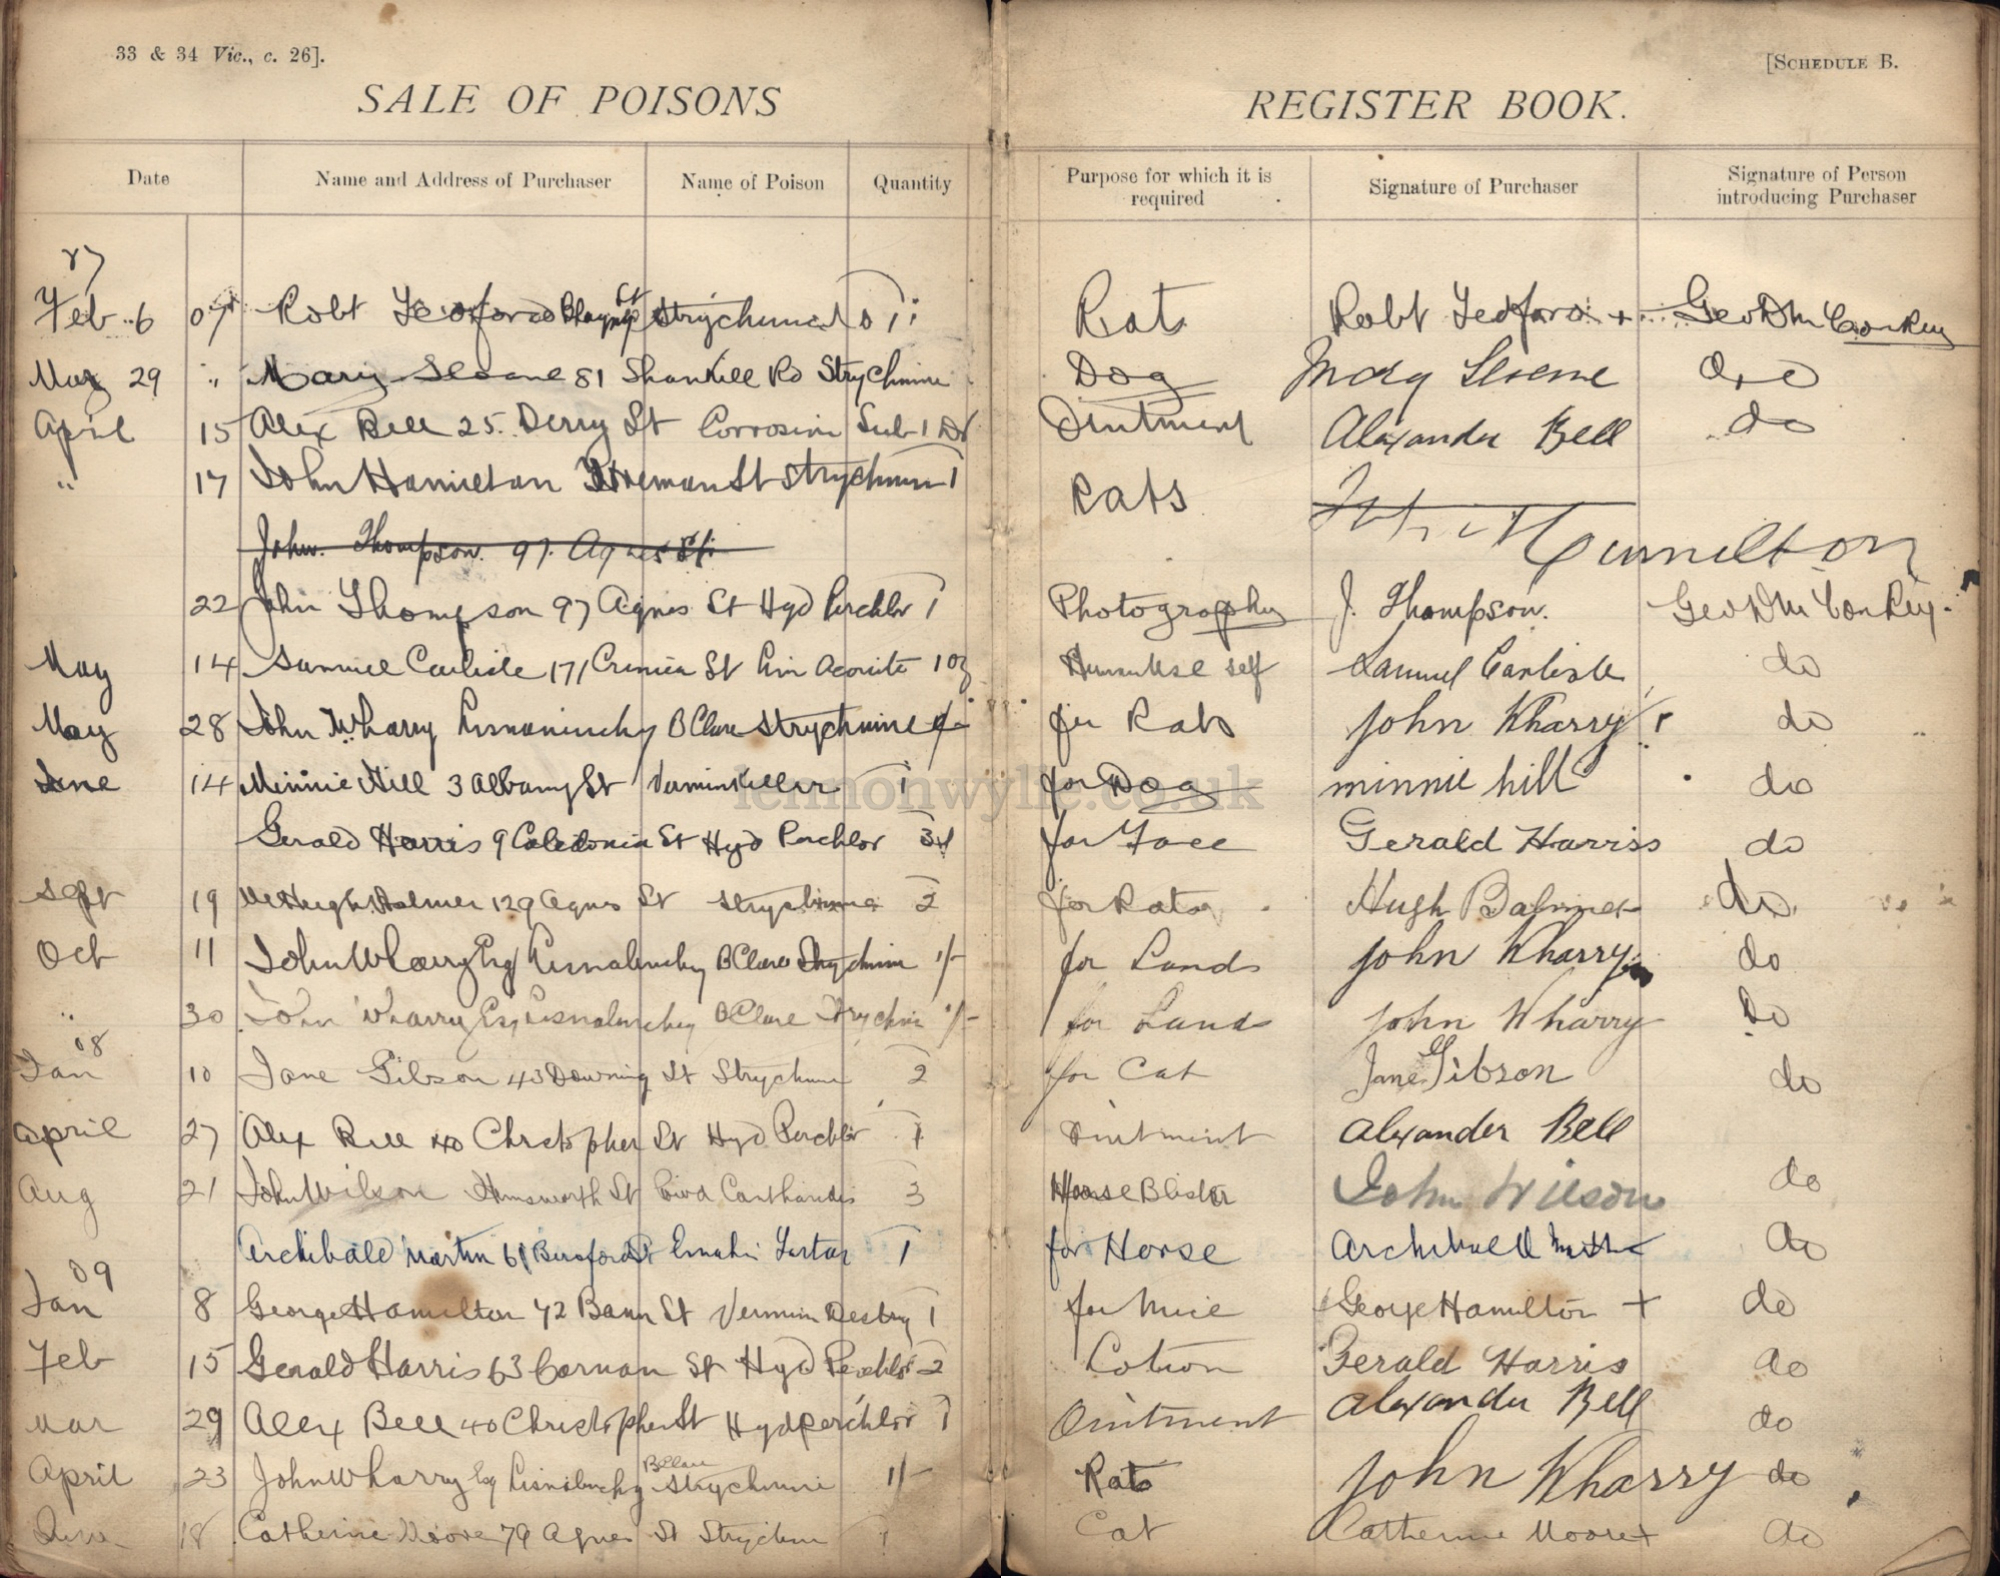 33 & 34 Vic., c. 26].
[SCHEDULE B.
SALE OF POISONS
REGISTER BOOK.
Date Name and Address of Purchaser Name of Poison Quantity Purpose for which it is required Signature of Purchaser Signature of Person introducing Purchaser
Feb 6 07 Robt Ledford Strychnine Rats Robt Ledford + Geo D McConkey
May 29 " Mary Sloane 81 Shankill Rd Strychnine Dog Mary Sloane do
April 15 Alex Bell 25 Derry St Corrosive Sub 1 Dr Ointment Alexander Bell do
" 17 John Hamilton St Strychnine 1 Rats Hamilton
John Thompson 97 Agnes St
22 John Thompson 97 Agnes St Hyd Perchlor 1 Photography J. Thompson. Geo D McConkey.
May 14 Samuel Carlisle 171 Crimea St Lin Aconite 1 oz self Samuel Carlisle do
May 28 John Wharry B Clare Strychnine for Rats John Wharry do
June 14 Minnie Hill 3 Albany St Vermin Killer 1 for Dog minnie hill do
Gerald Harris 9 Caledonia St Hyd Perchlor 3 for Face Gerald Harris do
Sept 19 Hugh Balmer 129 Agnes St Strychnine 2 for Rats Hugh Balmer do
Oct 11 John Wharry Esq B Clare Strychnine 1/- for Lands John Wharry do
" 30 John Wharry Esq B Clare Strychnine 1/- for Land John Wharry Do
08
Jan 10 Jane Gibson 43 Downing St Strychnine 2 for Cat Jane Gibson do
April 27 Alex Bell 40 Christopher St Hyd Perchlor 1 Ointment Alexander Bell
Aug 21 John Wilson Hemsworth St 3 Horse Blister John Wilson do
Archibald Martin 61 Beresford St Tartar 1 for Horse Archibald Martin do
09
Jan 8 George Hamilton 42 Bann St Vermin Destroy 1 for Mice George Hamilton + do
Feb 15 Gerald Harris 63 St Hyd Perchlor 2 Lotion Gerald Harris do
Mar 29 Alex Bell 40 Christopher St Hyd perchlor 1 Ointment Alexander Bell do
April 23 John Wharry Esq B Clare Strychnine 1/- Rats John Wharry do
June 18 Catherine Moore 79 Agnes St Strychnine 1 Cat Catherine Moore + do
lennonwylie.co.uk